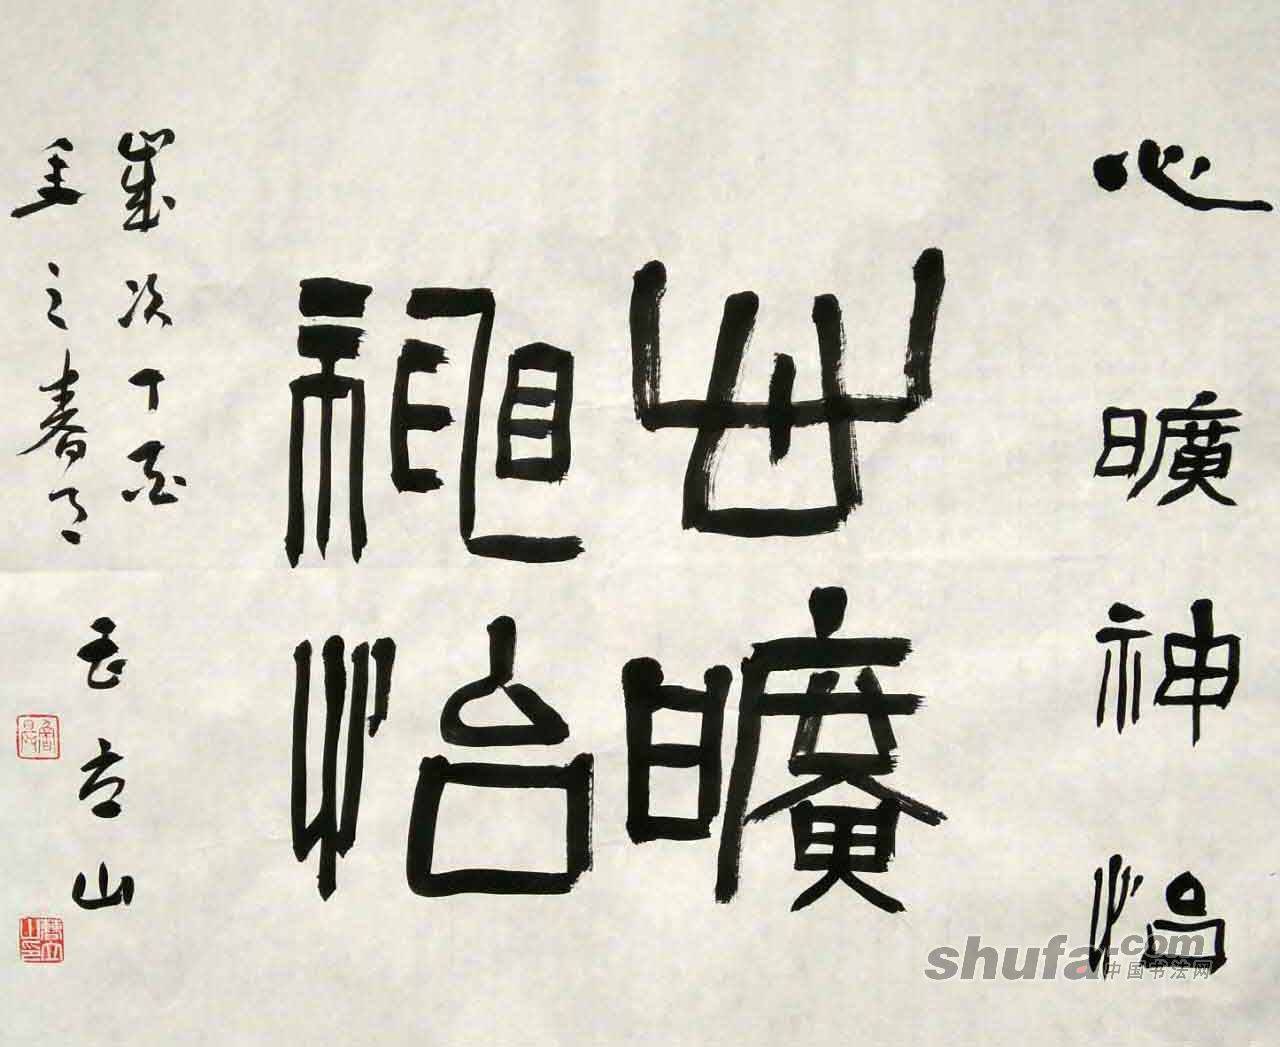 心曠神怡
心曠
神怡
歲次
之春月
山
shufa.com
中国书法网